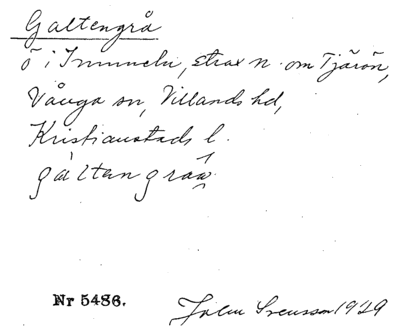 Galtengrå
ö i Immeln, strax n. om Tjärön,
Vånga sn, Villands hd,
Kristianstads l.
Nr 5486.
John Svensson 1929